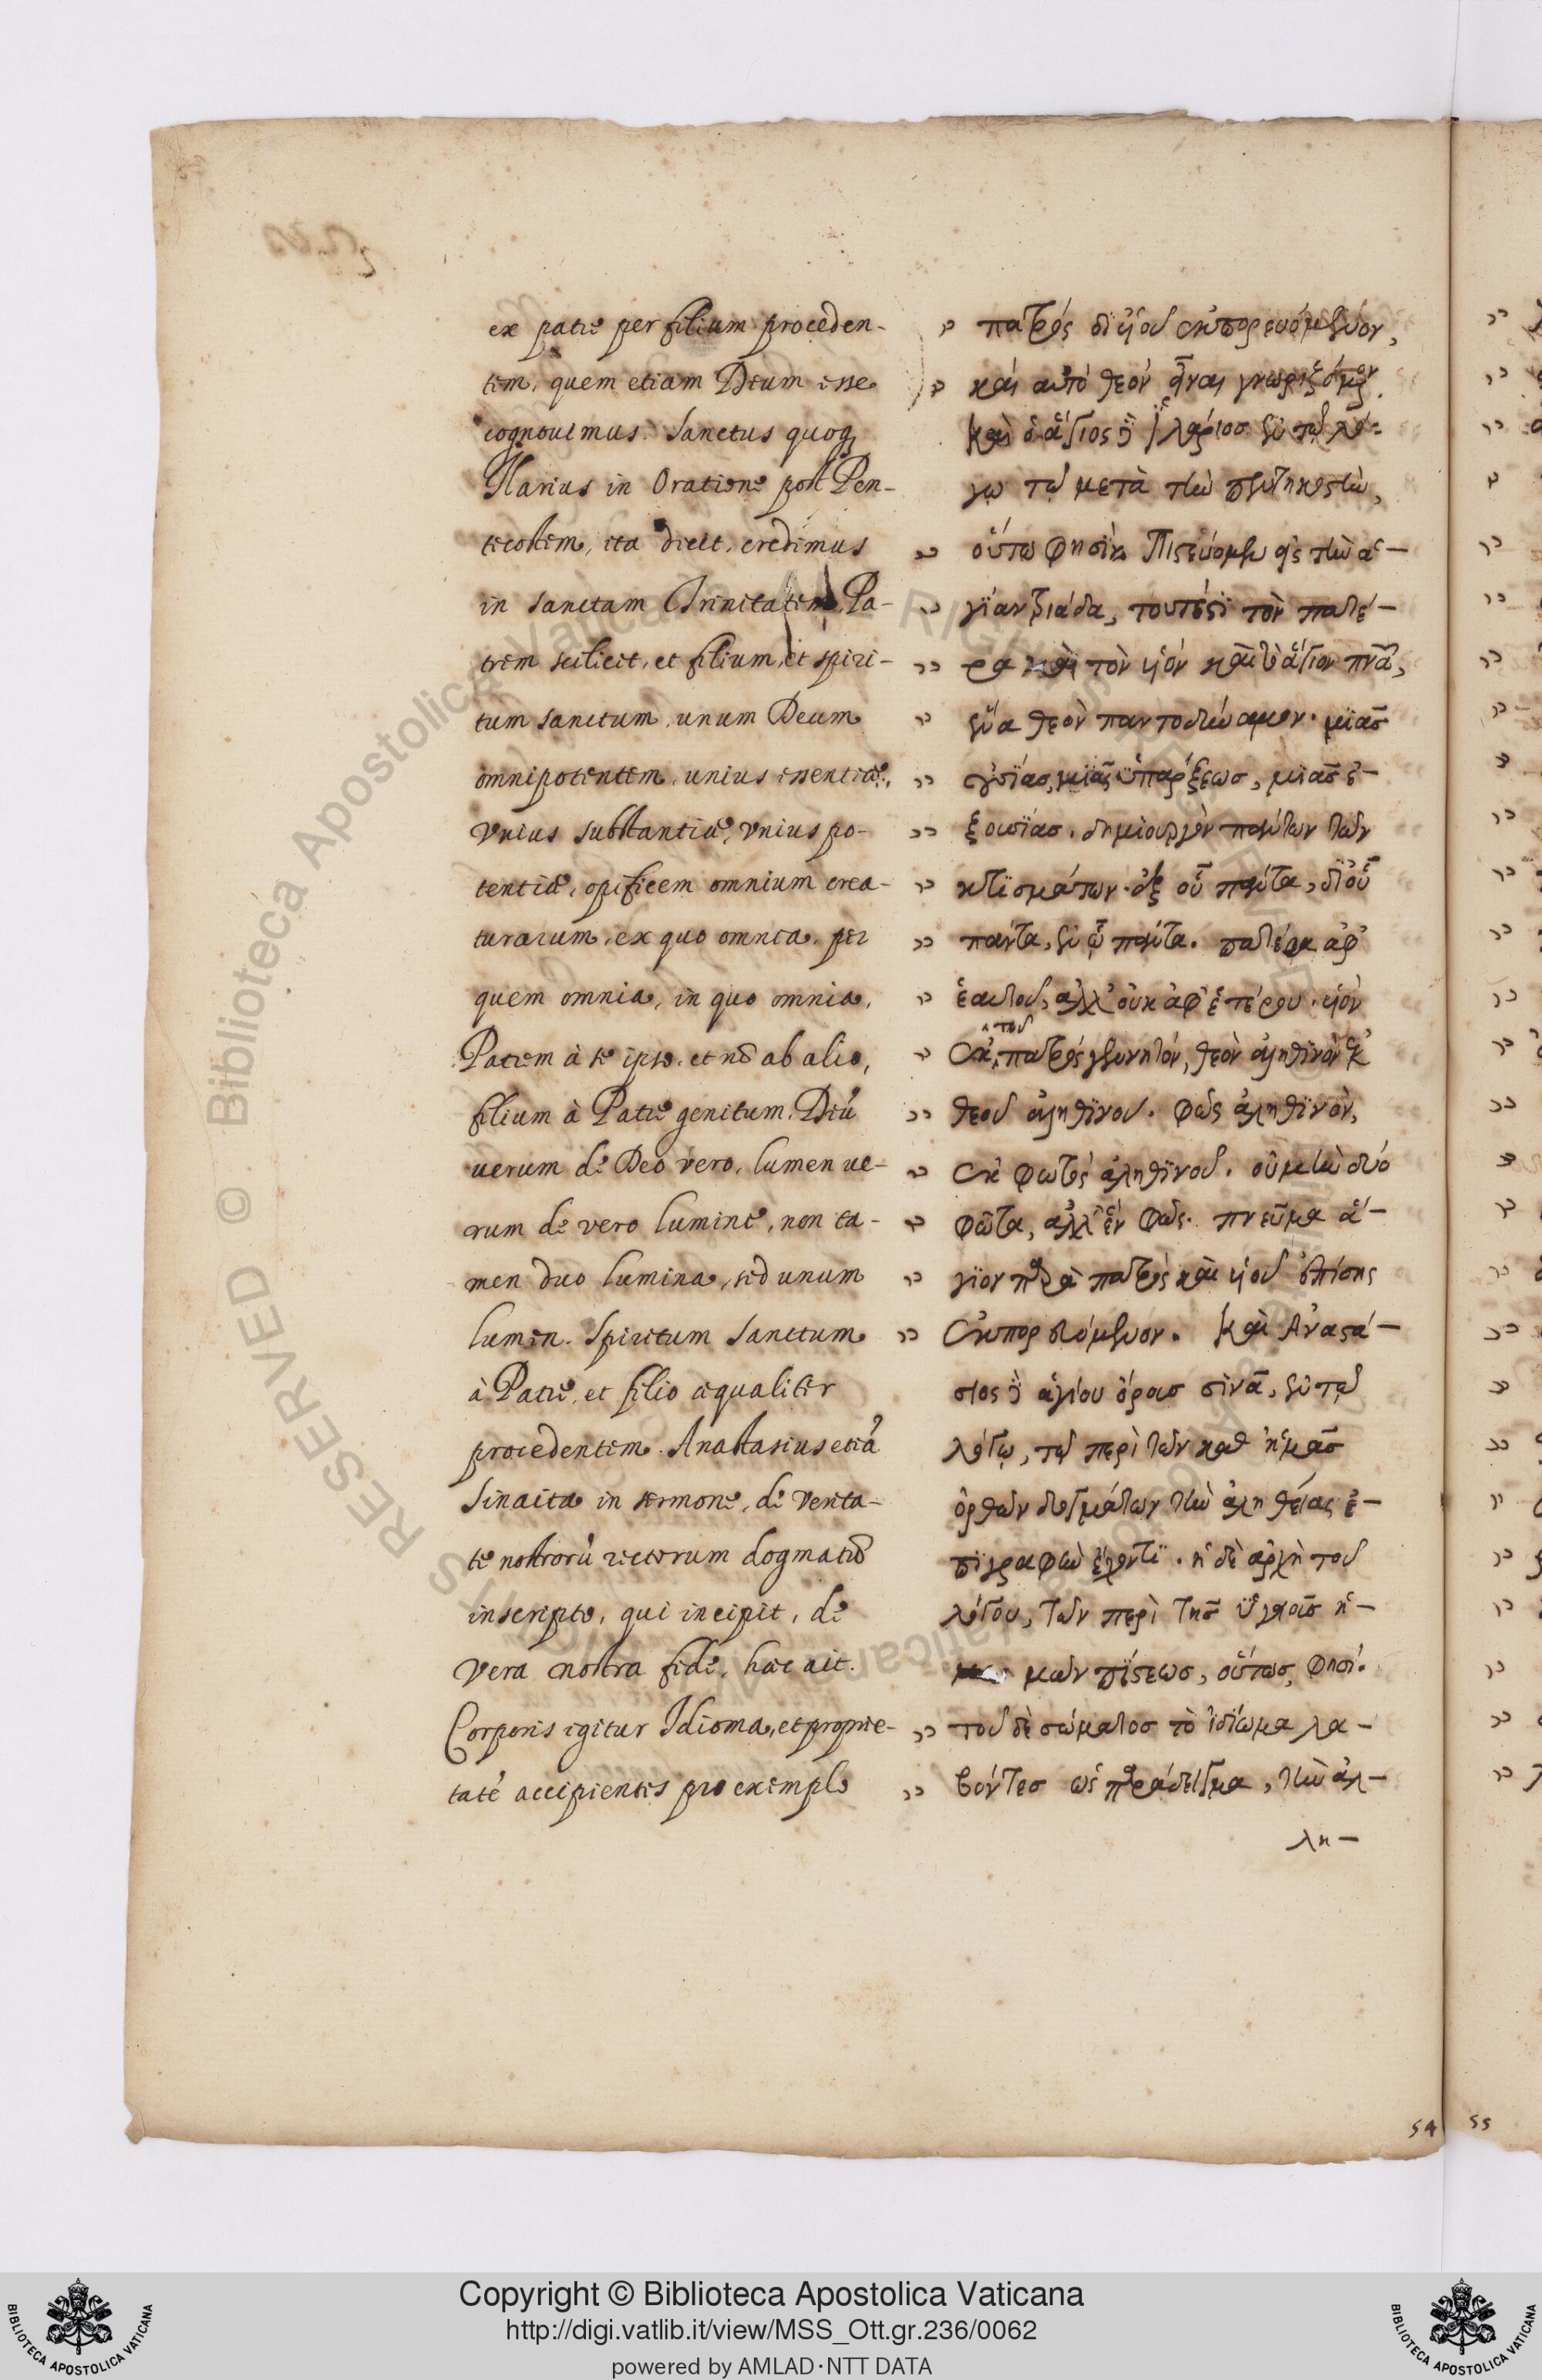 ex patre per filium proceden-
tem, quem etiam Deum esse
cognouimus. Sanctus quoq;
Ilarius in Oratione post Pen-
tecostem, ita dicit. credimus
in sanctam Trinitatem, Pa-
trem scilicit, et filium, et spiri-
tum sanctum, unum Deum
omnipotentem, unius essentiae,
vnius substantiae, vnius po-
tentiae, opificem omnium crea-
turarum, ex quo omnia, per
quem omnia, in quo omnia,
Patrem à se ipso, et nō ab alio,
filium à Patre genitum. Deū
uerum de Deo vero, lumen ue-
rum de vero lumine, non ta-
men duo lumina, sed unum
lumen. Spiritum Sanctum
à Patre, et filio aequaliter
procedentem. Anastasius etiā
Sinaita in sermone, de verita-
te nostrorū rectorum dogmatū
inscripto, qui incipit, de
vera nostra fide, haec ait.
Corporis igitur Idioma, et proprie-
tatē accipientes pro exemplo
πατρός δι' υἱοῦ ἐκπορευόμενον,
καὶ αὐτό θεόν εἶναι γνωρίζομεν.
Καὶ ὁ ἅγιος δὲ ἱλάριος ἐν τῷ λό-
γῳ τῷ μετὰ τὴν πεντηκοστὴν,
οὕτω φησίν Πιστεύομεν εἰς τὴν ἁ-
γίαν τριάδα, τουτέστι τὸν πατέ-
ρα καὶ τὸν υἱόν καὶ τὸ ἅγιον πνᾶ,
ἕνα θεὸν παντοδύναμον. μιᾶς
οὐσίας, μιᾶς ὑπάρξεως, μιᾶς ἐ-
ξουσίας. δημιουργὸν πάντων τῶν
κτισμάτων. ἐξ οὗ πάντα, δι' οὗ
πάντα, ἐν ᾧ πάντα. πατέρα ἀφ'
ἑαυτοῦ, ἀλλ' οὐκ ἀφ' ἑτέρου. υἱόν
ἐκ τοῦ πατρός γεννητόν, θεὸν ἀληθινὸν ἐκ
θεοῦ ἀληθινοῦ. φῶς ἀληθινὸν,
ἐκ φωτός ἀληθινοῦ. οὐ μὴν δύο
φῶτα, ἀλλ' ἓν φῶς. πνεῦμα ἅ-
γιον παρὰ πατρός καὶ υἱοῦ ἐπίσης
ἐκπορευόμενον. Καὶ Ἀναστά-
σιος δὲ ἁγίου ὄρους σινᾶ, ἐν τῷ
λόγῳ, τῷ περὶ τῶν καθ' ἡμᾶς
ὀρθῶν δογμάτων τῆς ἀληθείας ἐ-
πιγραφὴν ἔχοντι. ἡ δὲ ἀρχὴ τοῦ
λόγου, τῶν περὶ τῆς ὑγιοῦς ἡ-
μῶν πίστεως, οὕτως φησί.
τοῦ δὲ σώματος τὸ ἰδίωμα λα-
βόντες ὡς παράδειγμα, τὴν ἀλ-
λη-
54
55
Copyright © Biblioteca Apostolica Vaticana
http://digi.vatlib.it/view/MSS_Ott.gr.236/0062
powered by AMLAD·NTT DATA